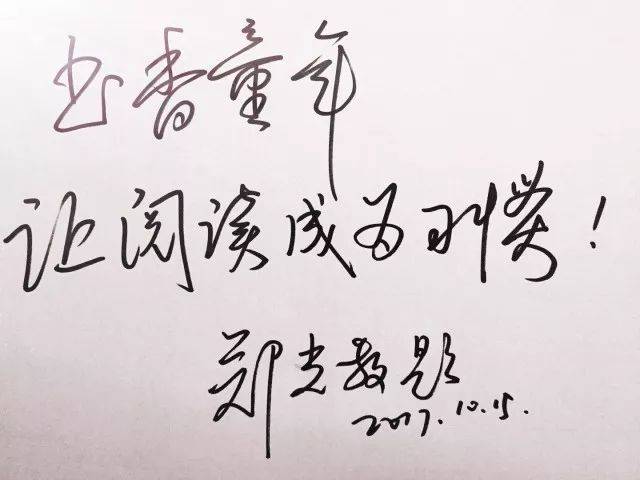 书香童年
让阅读成为!
郑光题
2017.10.15.